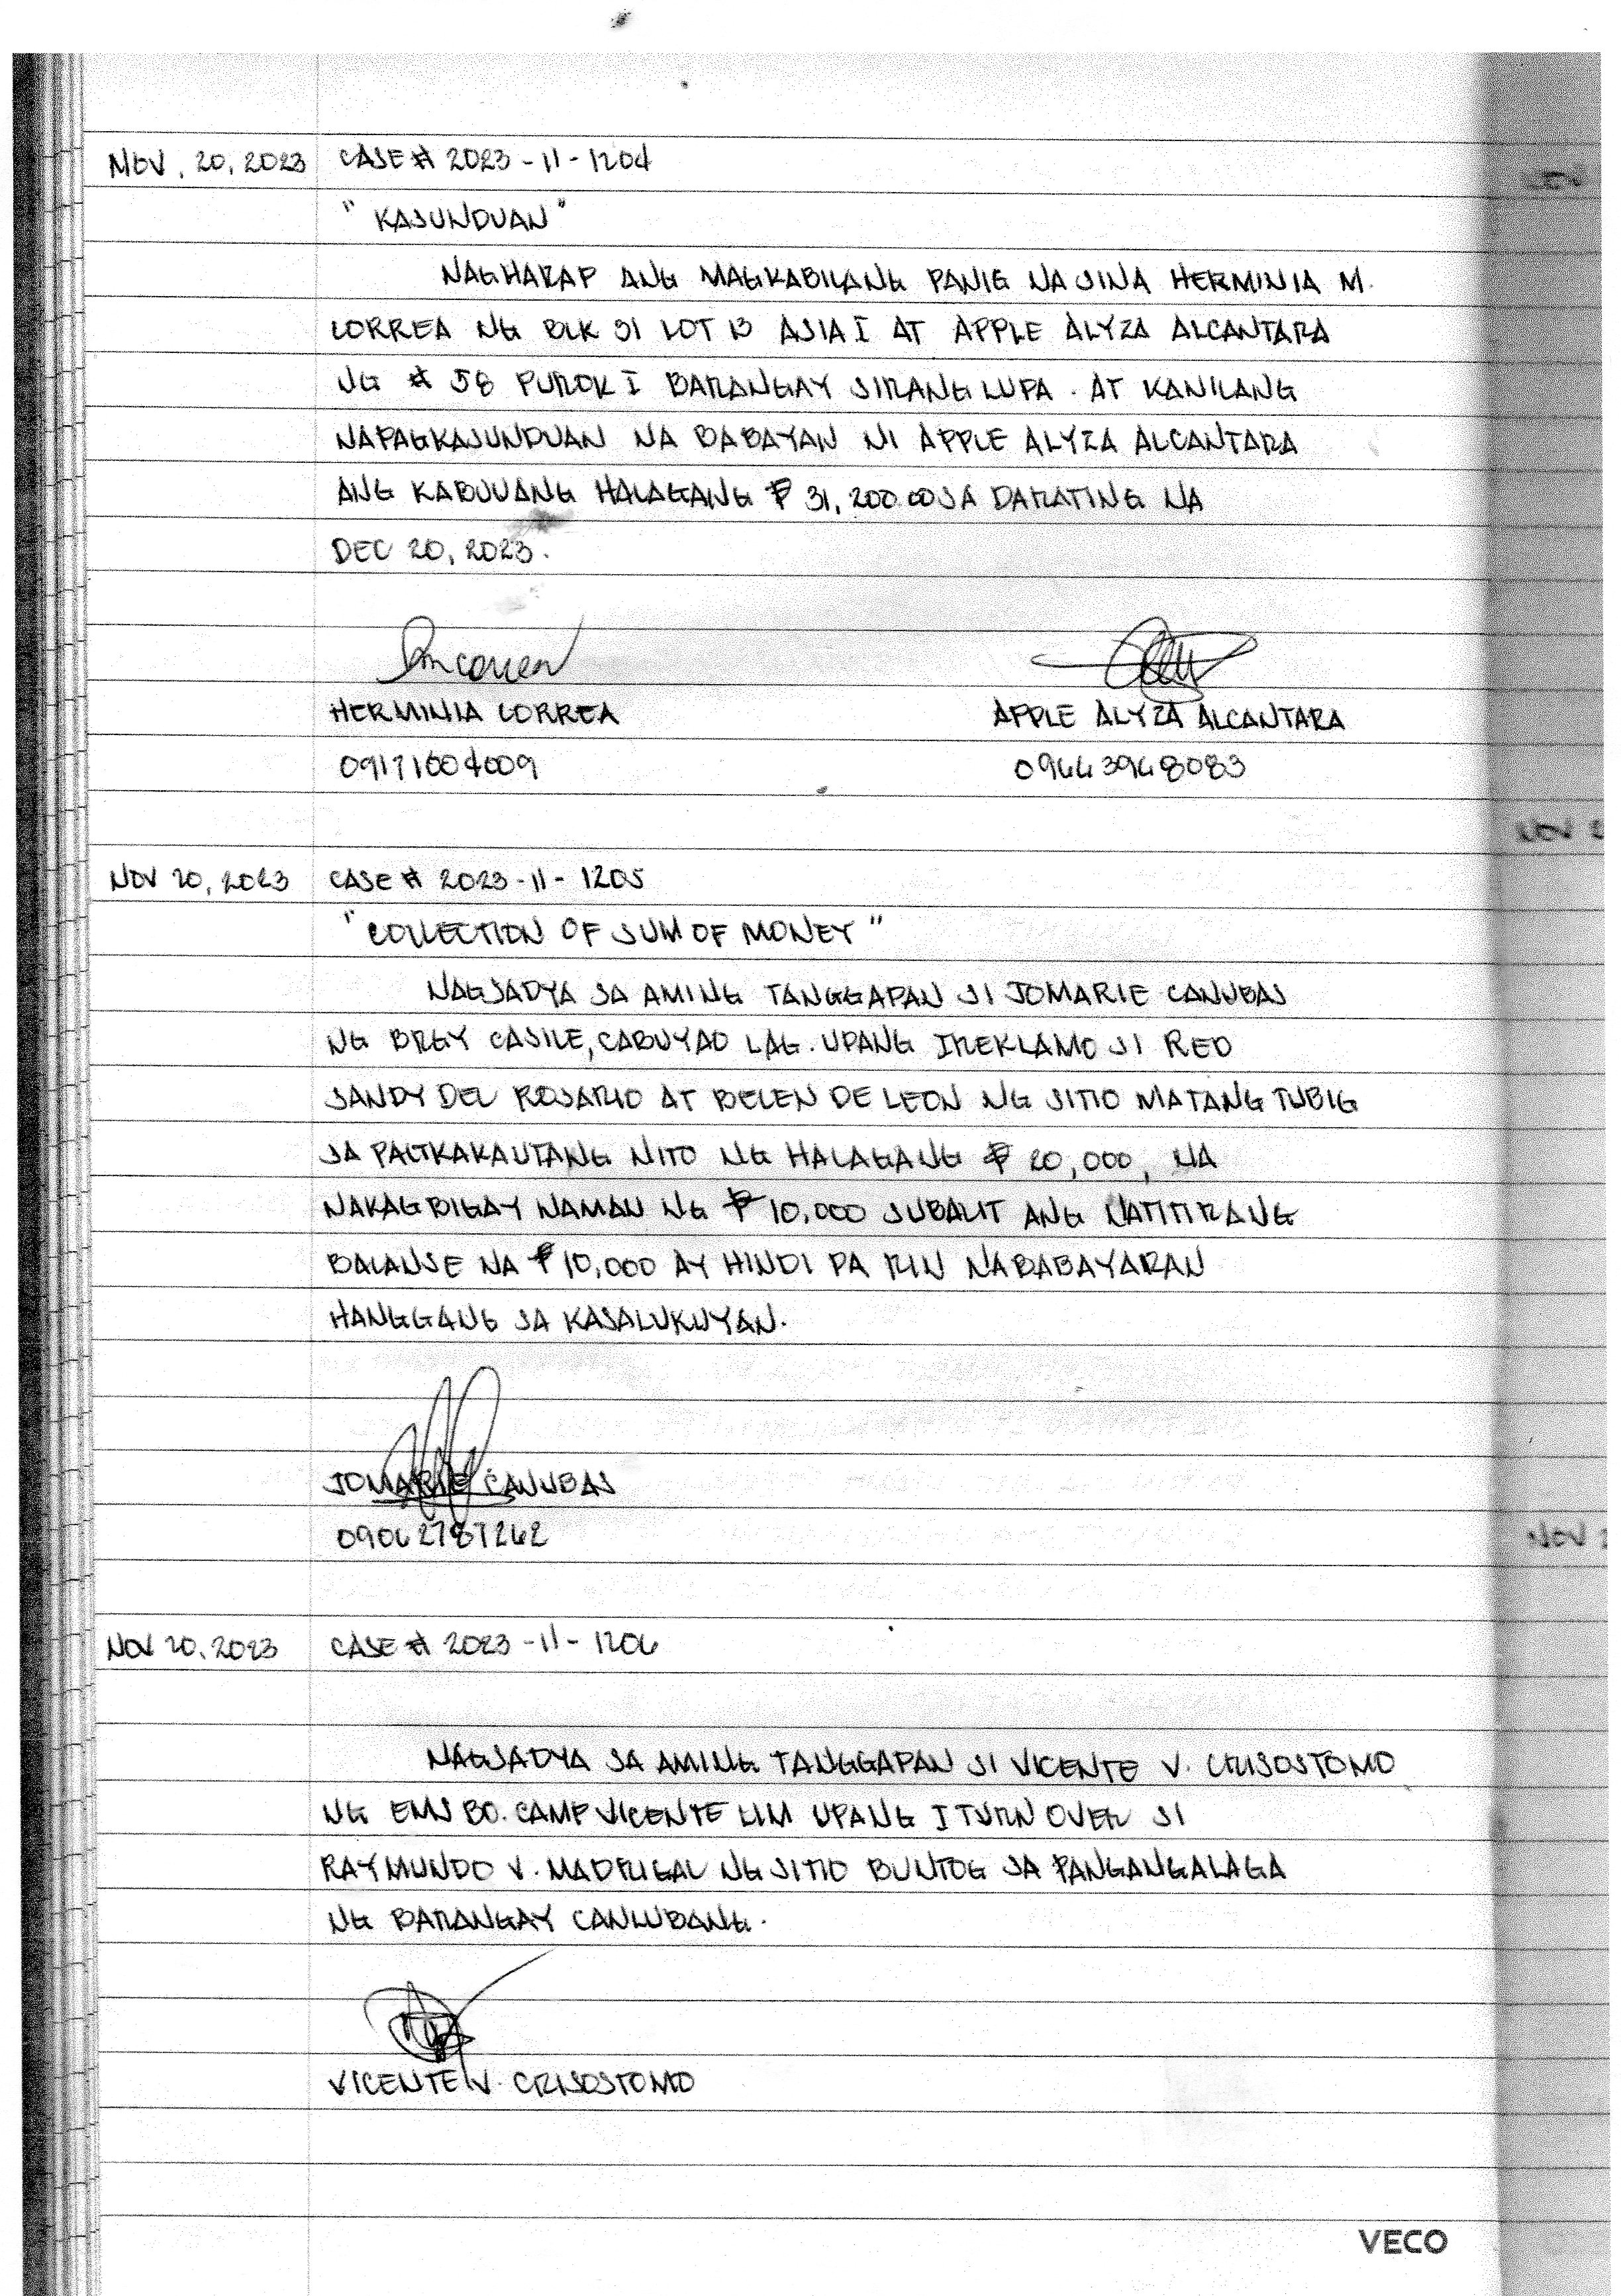 NOV. 20, 2023 CASE # 2023-11-1204
"KASUNDUAN"
NAGHARAP ANG MAGKABILANG PANIG NA SINA HERMINIA M.
CORREA NG BLK 31 LOT 13 ASIA I AT APPLE ALYZA ALCANTARA
NG # 58 PUROK I BARANGAY SIRANG LUPA. AT KANILANG
NAPAGKASUNDUAN NA BABAYAN NI APPLE ALYZA ALCANTARA
ANG KABUUANG HALAGANG ₱ 31,200.00 SA DARATING NA
DEC 20, 2023.
HERMINIA CORREA APPLE ALYZA ALCANTARA
09171604009 09663968083
NOV 20, 2023 CASE # 2023-11-1205
"COLLECTION OF SUM OF MONEY"
NAGSADYA SA AMING TANGGAPAN SI JOMARIE CANUBAS
NG BRGY CASILE, CABUYAO LAG. UPANG IREKLAMO SI RED
SANDY DEL ROSARIO AT BELEN DE LEON NG SITIO MATANG TUBIG
SA PAGKAKAUTANG NITO NG HALAGANG ₱ 20,000, NA
NAKAGBIGAY NAMAN NG ₱ 10,000 SUBALIT ANG NATITIRANG
BALANSE NA ₱ 10,000 AY HINDI PA RIN NABABAYARAN
HANGGANG SA KASALUKUYAN.
JOMARIE CANUBAS
09062787262
NOV 20, 2023 CASE # 2023-11-1206
NAGSADYA SA AMING TANGGAPAN SI VICENTE V. CRISOSTOMO
NG EMS BO. CAMP VICENTE LIM UPANG I TURN OVER SI
RAYMUNDO V. MADRIGAL NG SITIO BUNTOG SA PANGANGALAGA
NG BARANGAY CANLUBANG.
VICENTE V. CRISOSTOMO
VECO
NOV
NOV 2
NOV 2